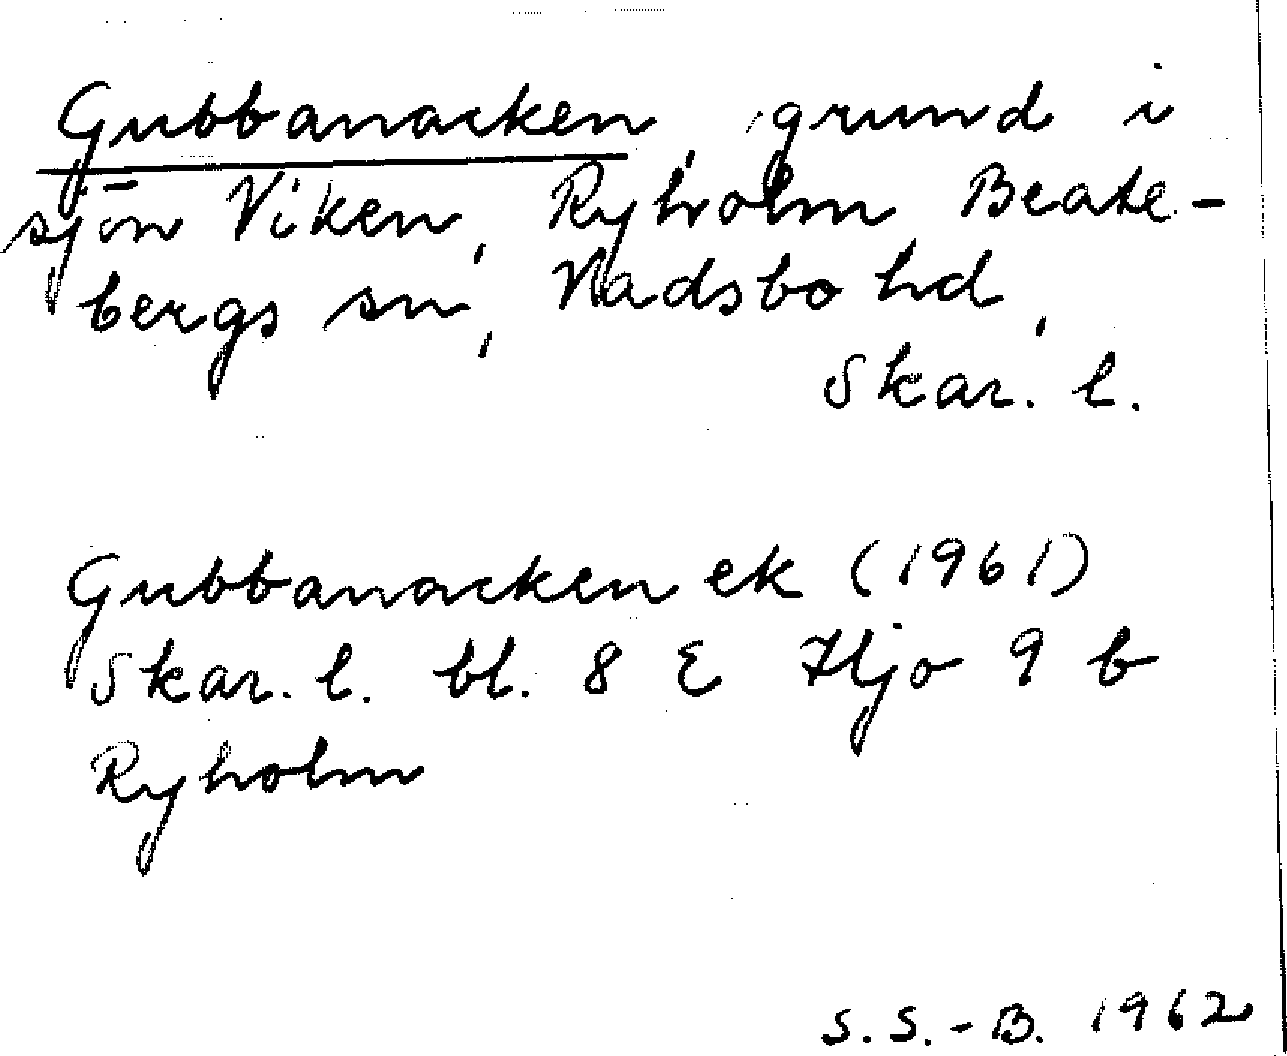 Gubbanacken, grund i
sjön Viken, Ryholm Beate-
bergs sn, Vadsbo hd,
Skar. l.
Gubbanacken ek (1961)
Skar. l. bl. 8 E Hjo 9 b
Ryholm
S.S.-B. 1962